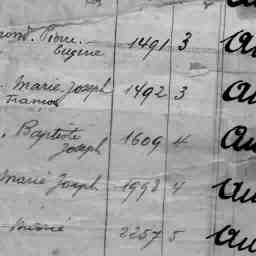 Pierre-
Eugène 1491 3 Au
Marie Joseph 1492 3 Au
Baptiste
Joseph 1609 4 Au
Marie Joseph 1998 4 Au
2257 5 Au